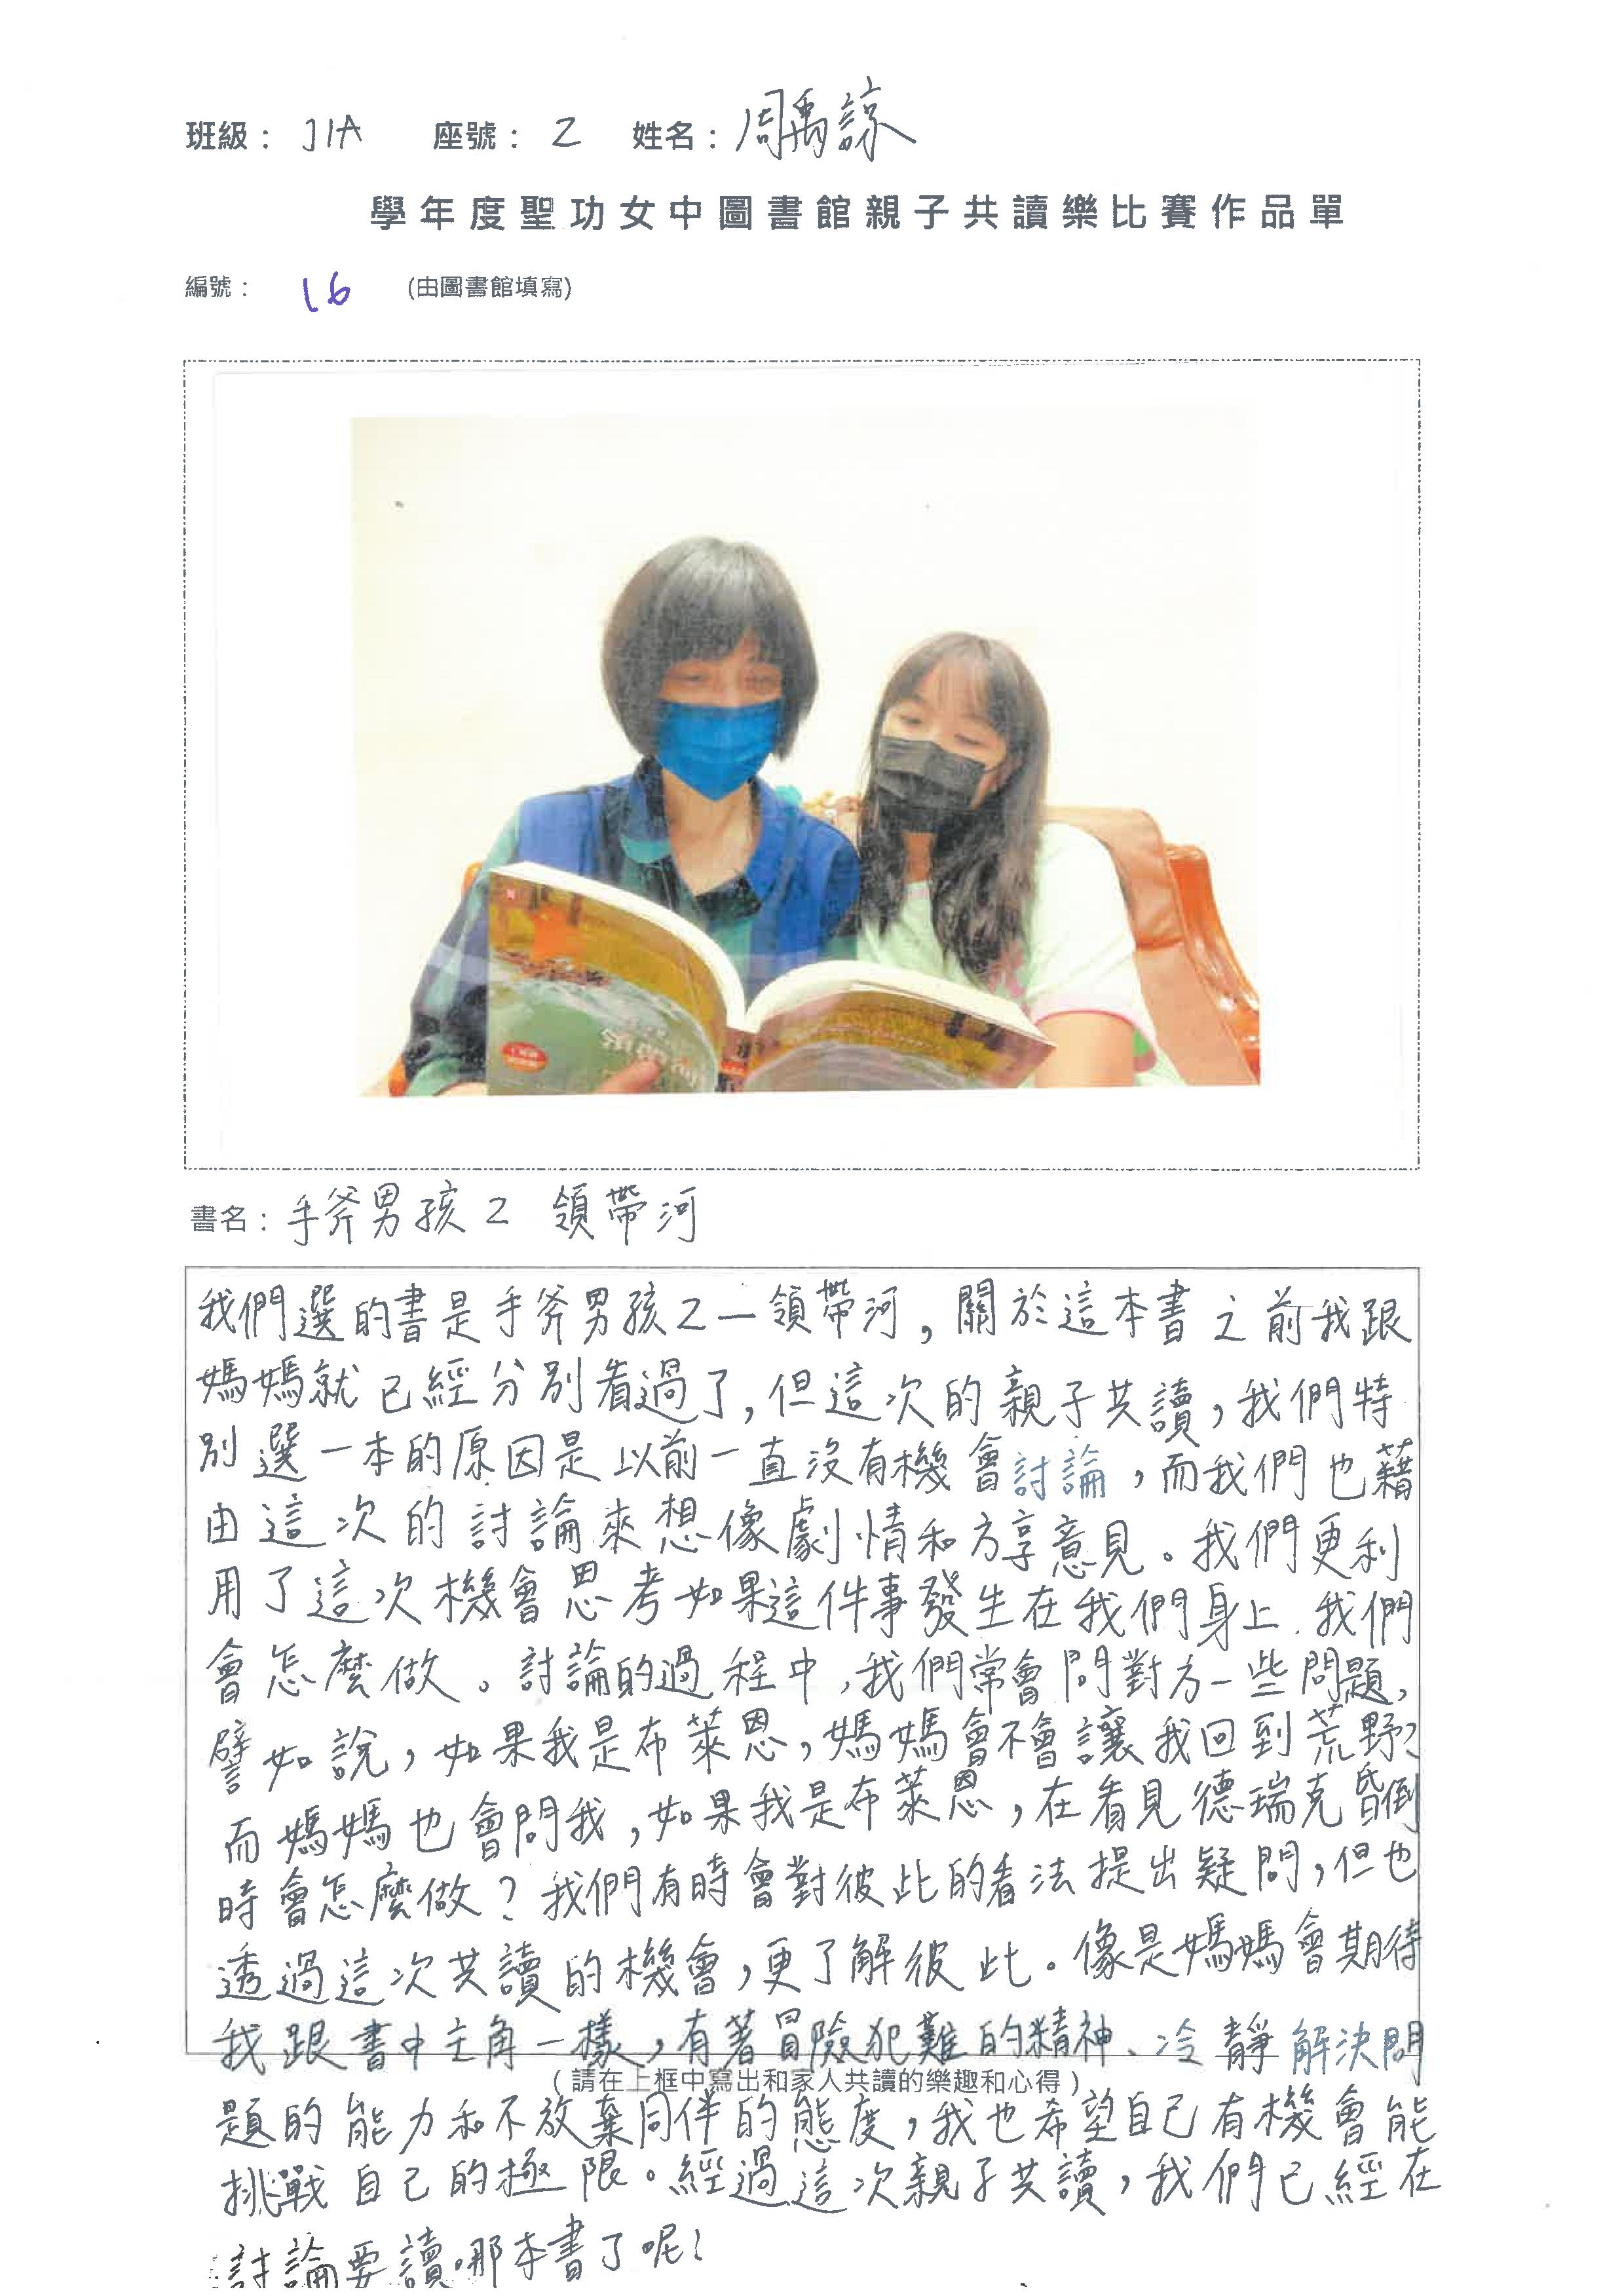 班級： J1A 座號： 2 姓名：周禹諒
學年度聖功女中圖書館親子共讀樂比賽作品單
編號： 16 (由圖書館填寫)
書名：手斧男孩2 領帶河
我們選的書是手斧男孩2—領帶河，關於這本書之前我跟
媽媽就已經分別看過了，但這次的親子共讀，我們特
別選一本的原因是以前一直沒有機會討論，而我們也藉
由這次的討論來想像劇情和分享意見。我們更利
用了這次機會思考如果這件事發生在我們身上，我們
會怎麼做。討論的過程中，我們常會問對方一些問題，
譬如說，如果我是布萊恩，媽媽會不會讓我回到荒野？
而媽媽也會問我，如果我是布萊恩，在看見德瑞克昏倒
時會怎麼做？我們有時會對彼此的看法提出疑問，但也
透過這次共讀的機會，更了解彼此。像是媽媽會期待
我跟書中主角一樣，有著冒險犯難的精神、冷靜解決問
（請在上框中寫出和家人共讀的樂趣和心得）
題的能力和不放棄同伴的態度，我也希望自己有機會能
挑戰自己的極限。經過這次親子共讀，我們已經在
討論要讀哪本書了呢！